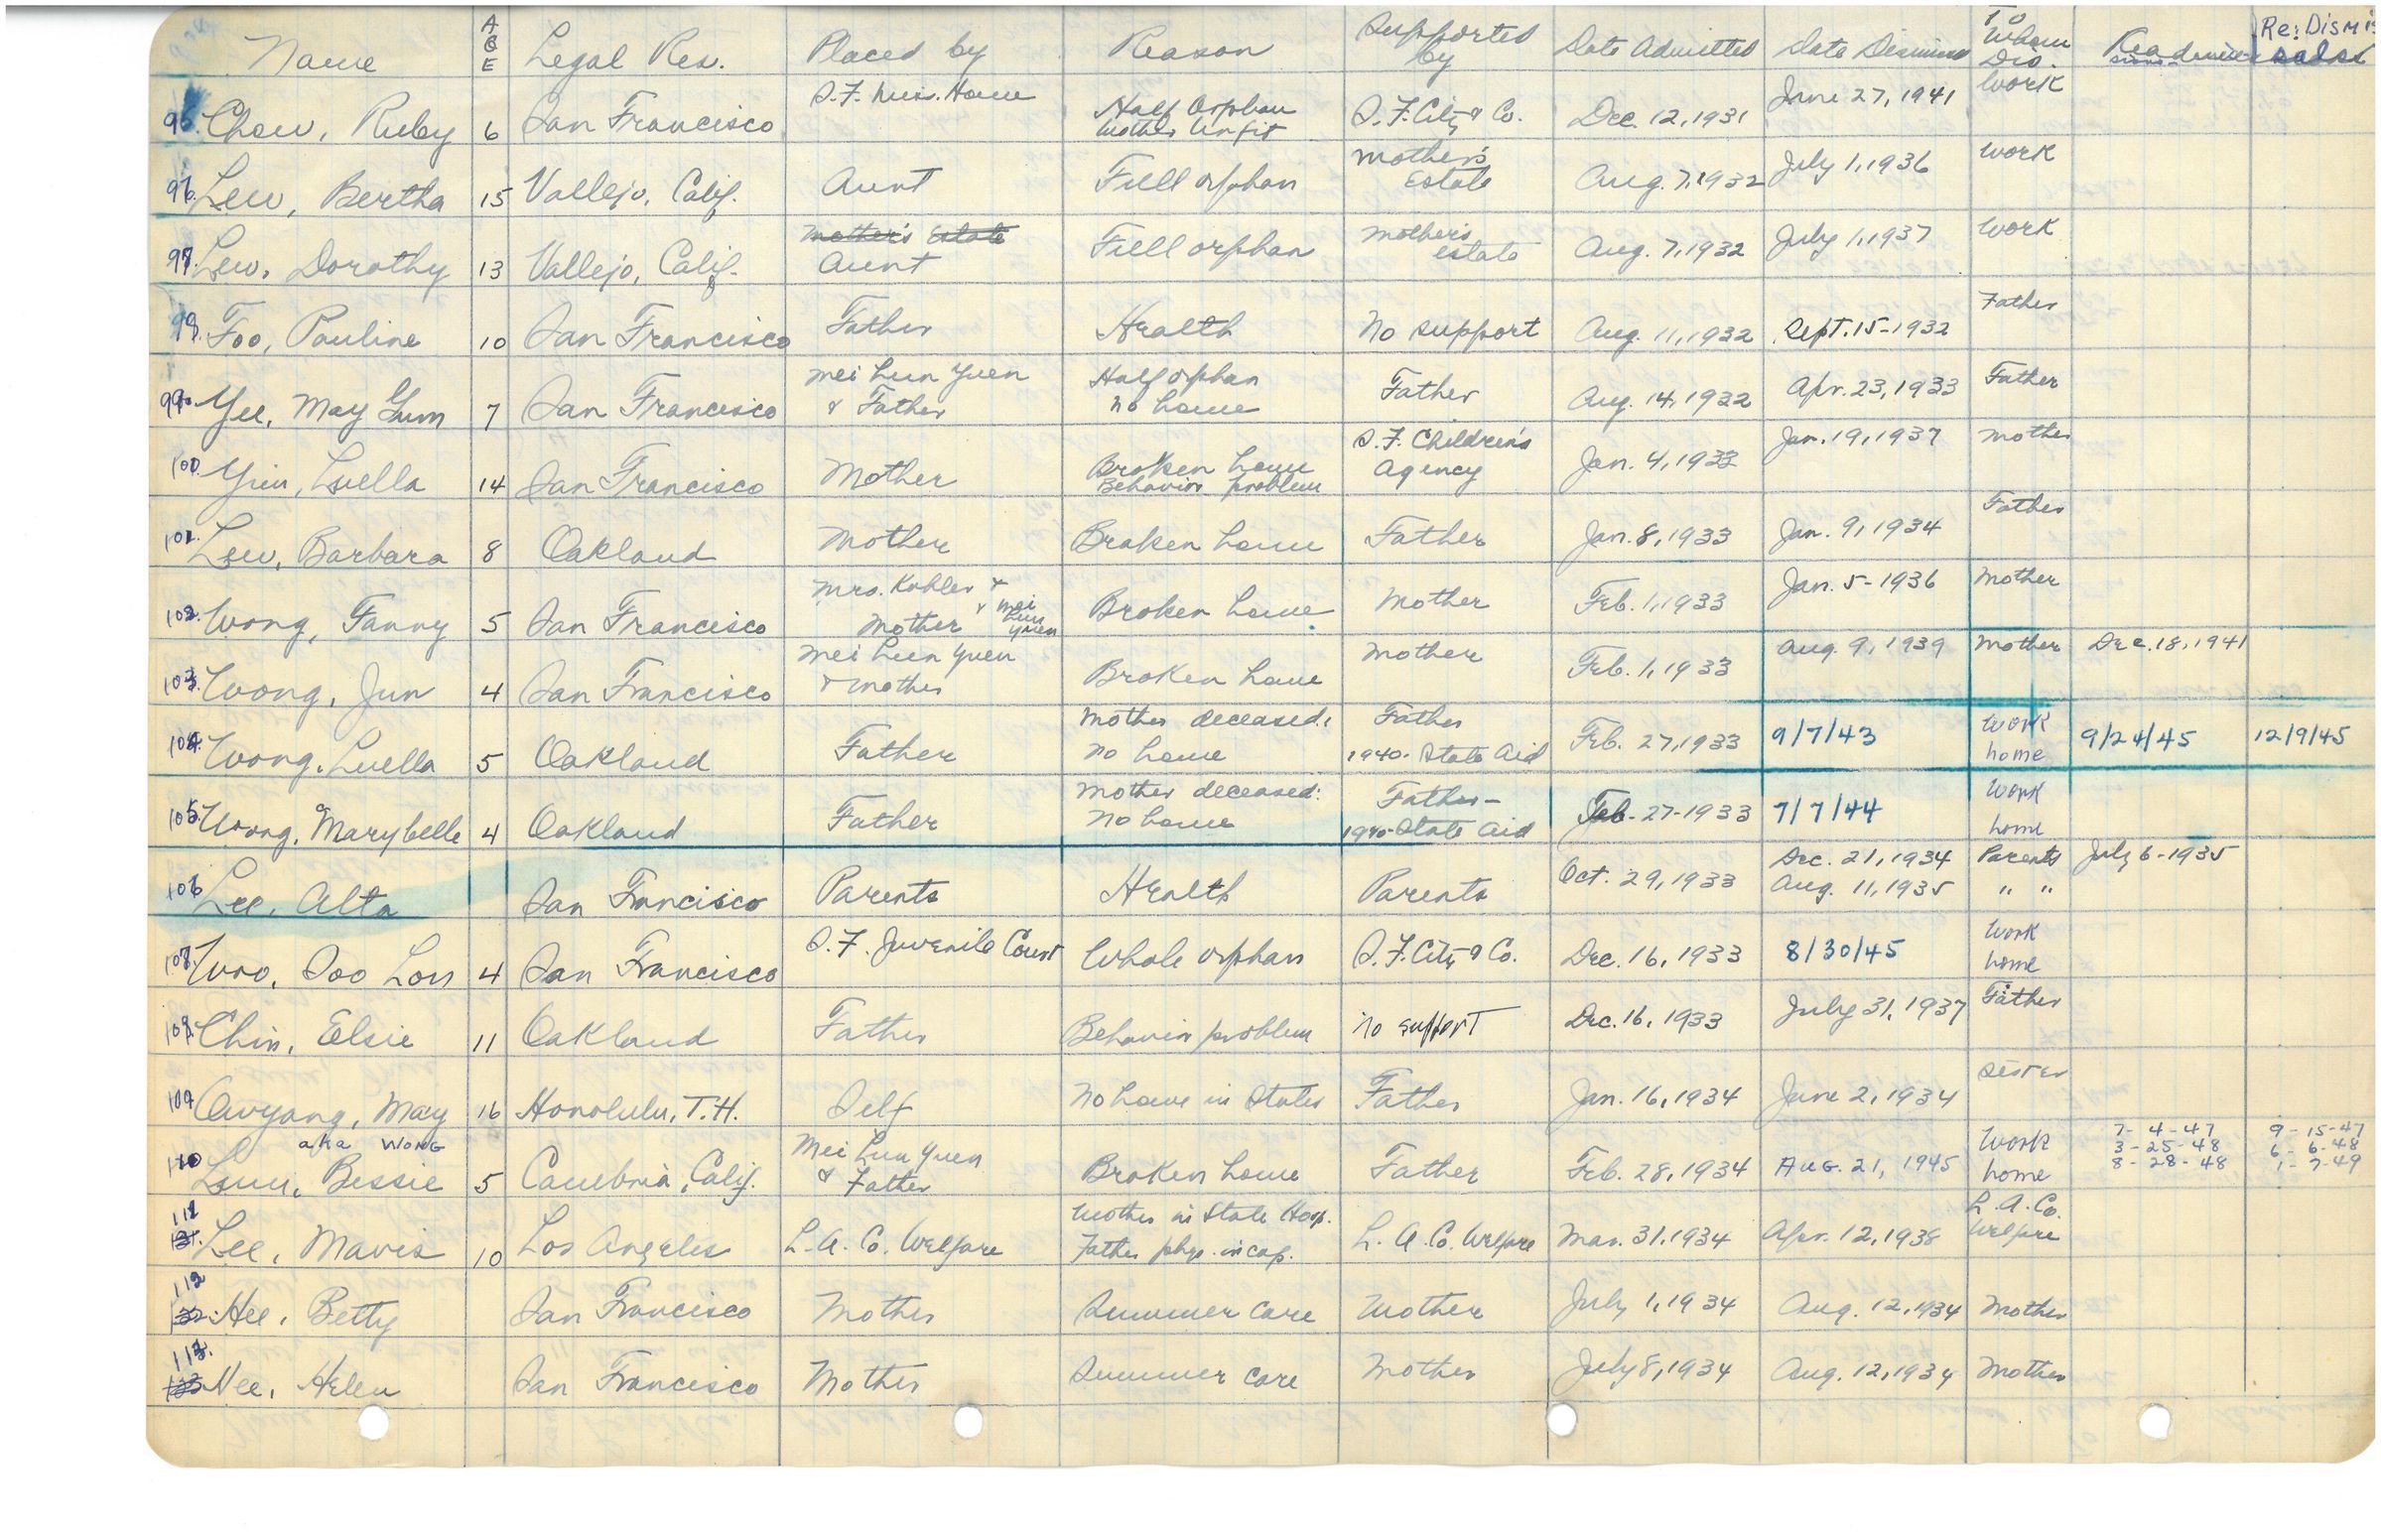 Name AGE Legal Res. Placed by Reason Supported by Date Admitted Date Dismissed To Whom Dis. Readmissions Re: Dismissals
Chew, Ruby 6 San Francisco S.F. Mis. Home Half Orphan Mother Unfit S.F. City & Co. Dec. 12, 1931 June 27, 1941 Work
Lew, Bertha 15 Vallejo, Calif. Aunt Full orphan Mother's Estate Aug. 7, 1932 July 1, 1936 Work
Lew, Dorothy 13 Vallejo, Calif. Mother's Estate Aunt Full orphan Mother's estate Aug. 7, 1932 July 1, 1937 Work
Foo, Pauline 10 San Francisco Father Health No support Aug. 11, 1932 Sept. 15-1932 Father
Yee, May Gum 7 San Francisco Mei Lun Yuen & Father Half orphan no home Father Aug. 14, 1932 Apr. 23, 1933 Father
100. Yim, Luella 14 San Francisco Mother Broken home Behavior problem S.F. Children's Agency Jan. 4, 1933 Jan. 19, 1937 Mother
101. Lew, Barbara 8 Oakland Mother Broken home Father Jan. 8, 1933 Jan. 9, 1934 Father
102. Wong, Fanny 5 San Francisco Mrs. Kohler & Mother & Mei Lun Yuen Broken home. Mother Feb. 1, 1933 Jan. 5-1936 Mother
103. Wong, Jun 4 San Francisco Mei Lun Yuen & Mother Broken home Mother Feb. 1, 1933 Aug. 9, 1939 Mother Dec. 18, 1941
104. Wong, Luella 5 Oakland Father Mother deceased; no home Father 1940-State Aid Feb. 27, 1933 9/7/43 Work home 9/24/45 12/9/45
105. Wong, Marybelle 4 Oakland Father Mother deceased: no home Father- 1940-State Aid Feb-27-1933 7/7/44 Work home
106 Lee, Alta San Francisco Parents Health Parents Oct. 29, 1933 Dec. 21, 1934 Parents July 6-1935
Aug. 11, 1935 " "
107. Woo, Soo Lon 4 San Francisco S.F. Juvenile Court Whole orphan S.F. City & Co. Dec. 16, 1933 8/30/45 Work home
108. Chin, Elsie 11 Oakland Father Behavior problem No support Dec. 16, 1933 July 31, 1937 Father
109 Owyang, May 16 Honolulu, T.H. Self No home in States Father Jan. 16, 1934 June 2, 1934 Sister
110 Lum, Bessie aka WONG 5 Cambria, Calif. Mei Lun Yuen & Father Broken home Father Feb. 28, 1934 AUG. 21, 1945 Work home 7-4-47 9-15-47
3-25-48 6-6-48
8-28-48 1-7-49
111 Lee, Mavis 10 Los Angeles L.A. Co. Welfare Mother in State Hosp. Father phys. incap. L.A. Co. Welfare Mar. 31, 1934 Apr. 12, 1938 L.A. Co. Welfare
112 Hee, Betty San Francisco Mother Summer care Mother July 1, 1934 Aug. 12, 1934 Mother
113. Nee, Helen San Francisco Mother Summer care Mother July 8, 1934 Aug. 12, 1934 Mother